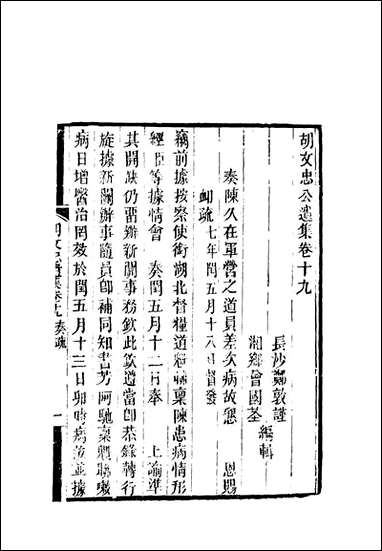 胡文忠公遺集卷十九
長沙鄭敦謹
湘鄉曾國荃
編輯
奏陳久在軍營之道員差次病故懇 恩賜
卹疏七年閏五月十八日督發
竊前據按察使銜湖北督糧道 稟陳患病情形
經臣等據情會 奏閏五月十二日奉 上諭準
其開缺仍留辦新關事務欽此欽遵當卽恭錄轉行
旋據新關辦事隨員卽補同知書芳阿馳稟
病日增醫治罔效於閏五月十三日卯時病故並據
胡文忠公遺集卷十九 奏疏
一